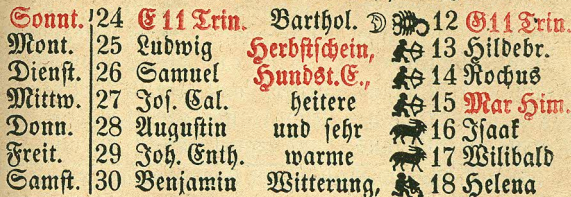 Sonnt. 24 E 11 Trin. Barthol. 12 G.11 Trin.
Mont. 25 Ludwig Herbstschein, 13 Hildebr.
Dienst. 26 Samuel Hundst.E., 14 Rochus
Mittw. 27 Jos. Cal. heitere 15 Mar Him.
Donn. 28 Augustin und sehr 16 Isaak
Freit. 29 Joh. Enth. warme 17 Wilibald
Samst. 30 Benjamin Witterung, 18 Helena